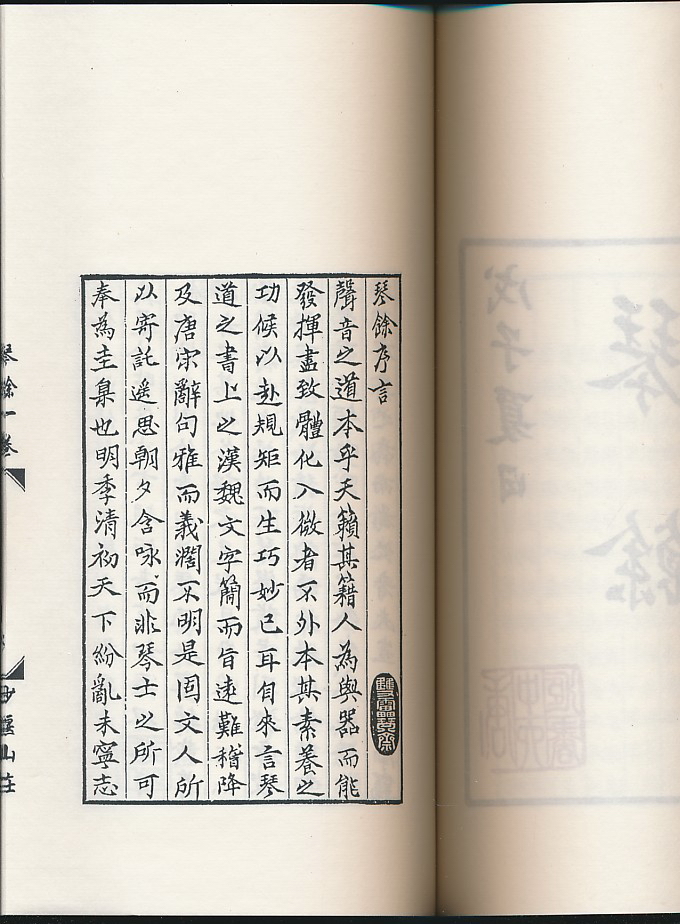 戊子夏日
琴餘序言
雙雷琴齋
聲音之道本乎天籟其籍人為與器而能
發揮盡致體化入微者不外本其素養之
功候以赴規矩而生巧妙已耳自來言琴
道之書上之漢魏文字簡而旨遠難稽降
及唐宋辭句雅而義濶不明是固文人所
以寄託遥思朝夕含咏而非琴士之所可
奉為圭臬也明季清初天下紛亂未寧志
琴餘一卷